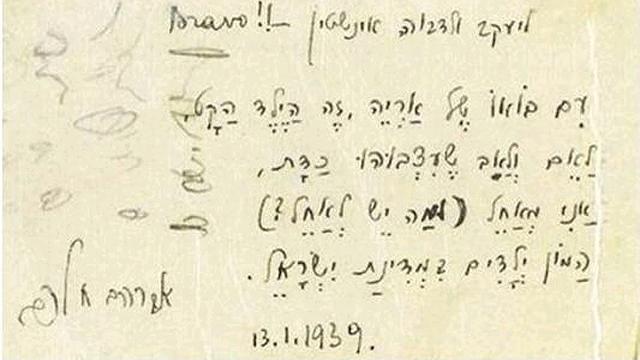 ליעקב ולדבורה אינשטין Bravo!!
עִם בּוֹאוֹ שֶׁל אַרְיֵה, זֶה הַיֶּלֶד הַקָּט,
לָאֵם וְלָאָב שֶׁעִצְּבוּהוּ כַּדָּת,
אֲנִי מְאַחֵל (וּמַה יֵשׁ לְאַחֵל?)
הֲמוֹן יְלָדִים בִּמְדִינַת יִשְׂרָאֵל.
אברהם חלפי
13.1.1939.